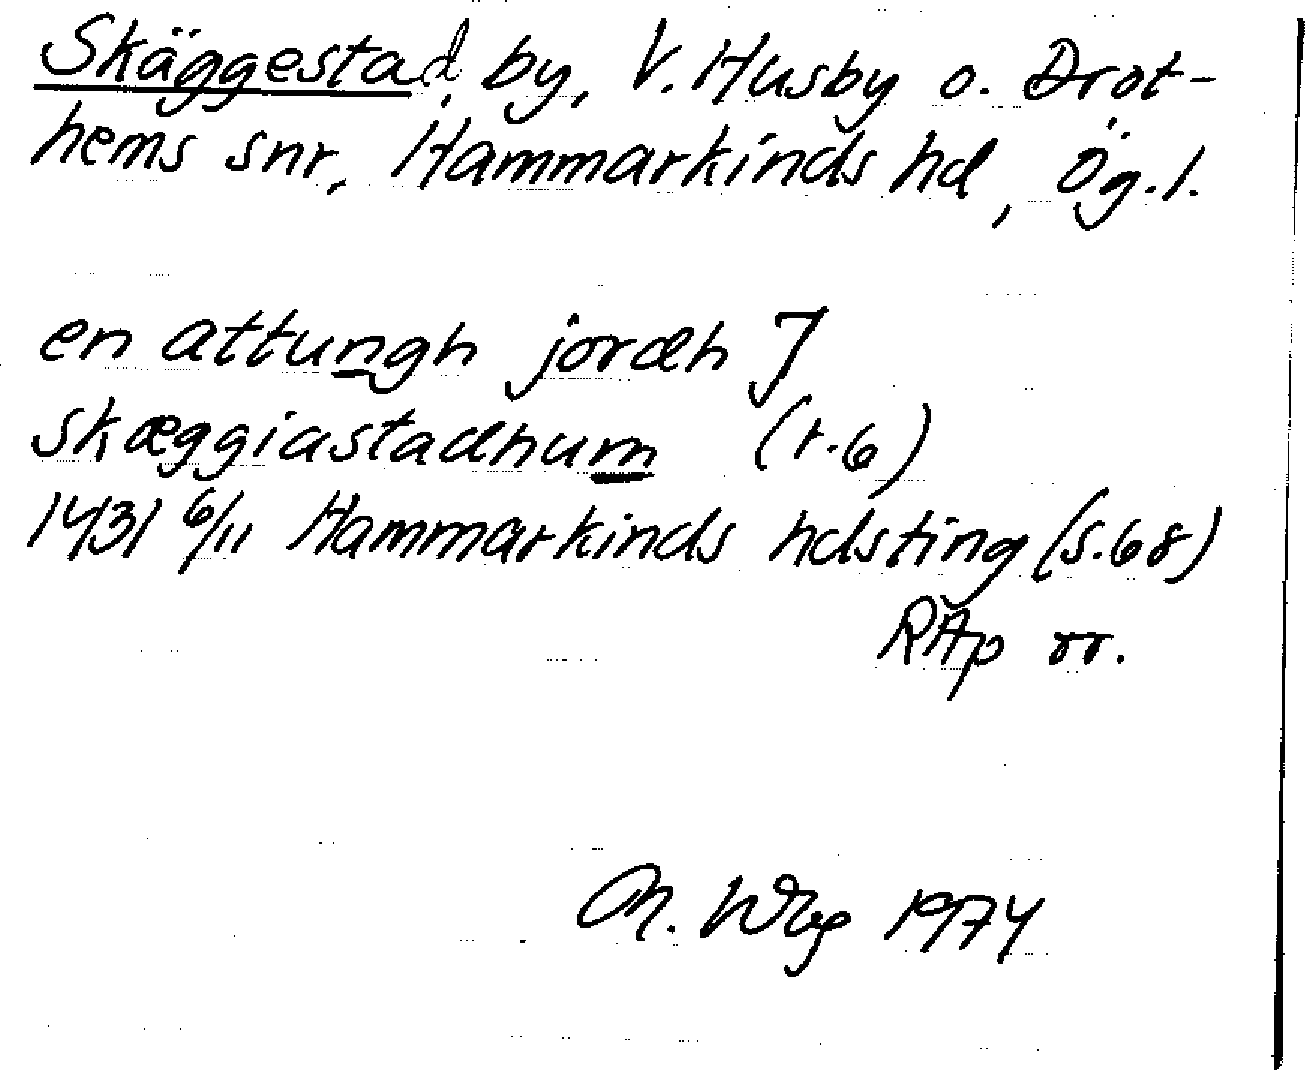 Skäggestad, by, V. Husby o. Drot-
hems snr, Hammarkinds hd, Ög.l.
en attungh jordh J
skæggiastadhum (r.6)
1431 6/11 Hammarkinds hdsting (S.68)
RAp or.
1974